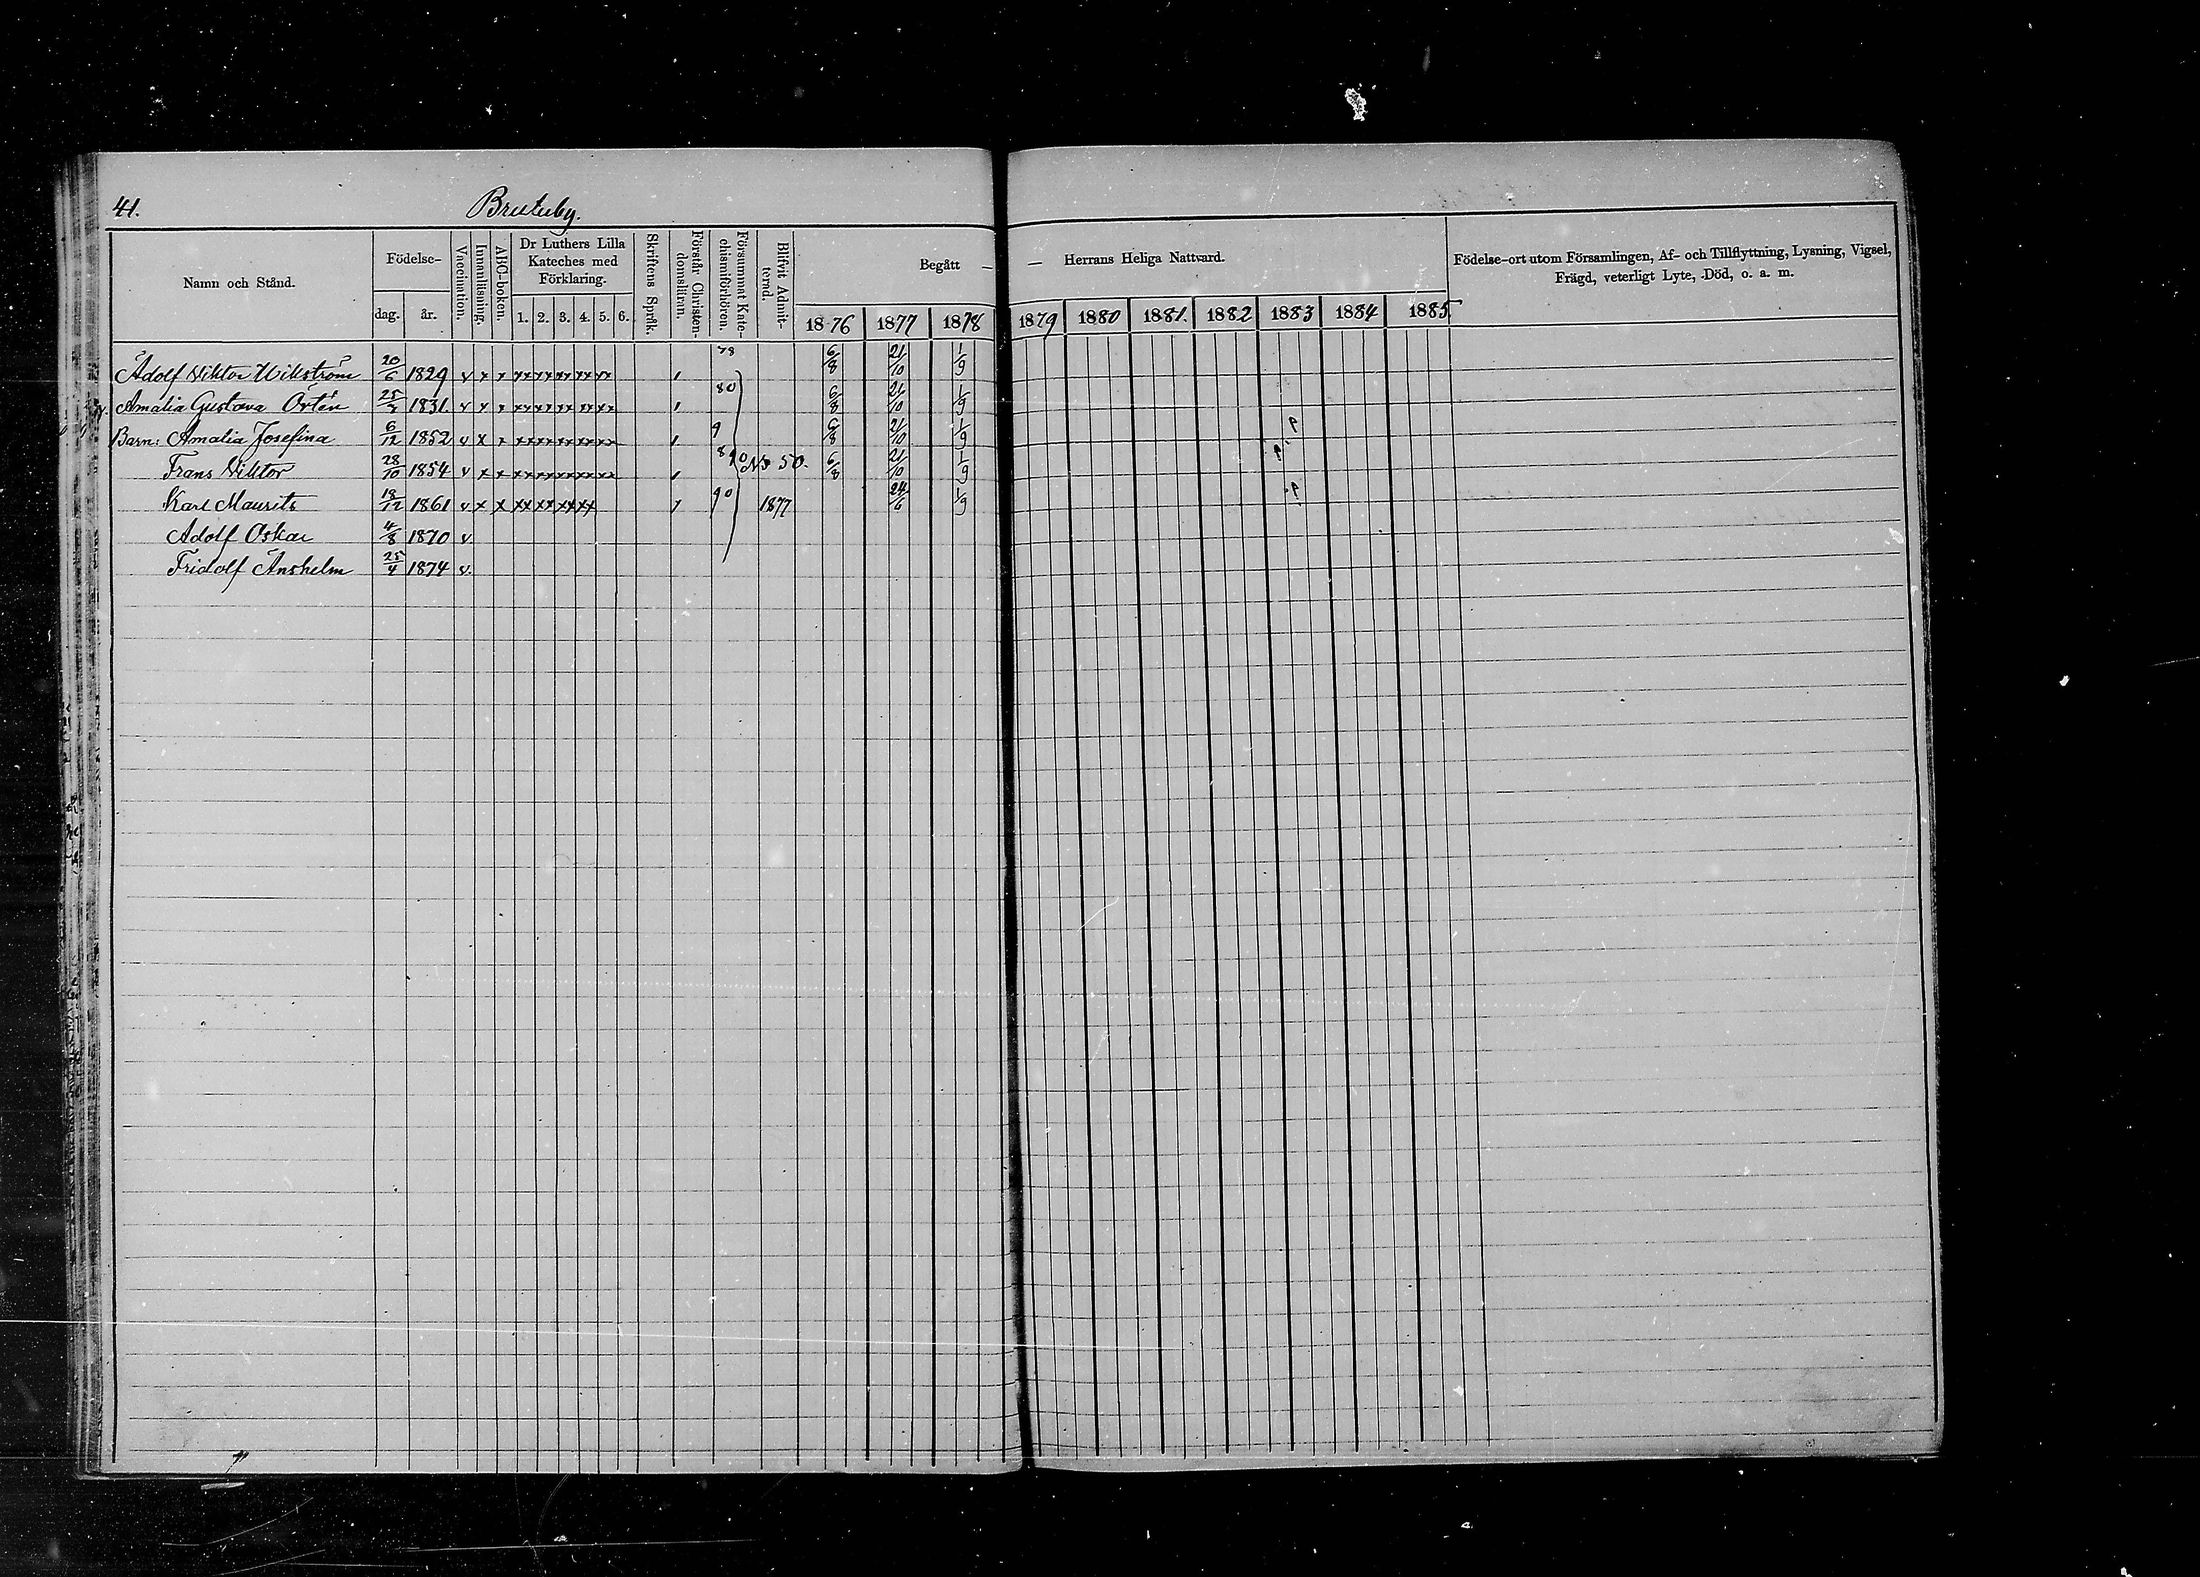 41.
Brutuby.
Namn och Stånd.
Födelse-
dag.
år.
Vaccination.
Innanläsning.
ABC-boken.
Dr Luthers Lilla
Kateches med
Förklaring.
1. 2. 3. 4. 5. 6.
Skriftens Språk.
Förstår Christen-
domsläran.
Försummat Kate-
chismiförhören.
Blifvit Admit-
terad.
Begått — — Herrans Heliga Nattvard.
1876 1877 1878 1879 1880 1881. 1882 1883 1884 1885.
Födelse-ort utom Församlingen, Af- och Tillflyttning, Lysning, Vigsel,
Frägd, veterligt Lyte, Död, o. a. m.
Adolf Viktor Wikström 20/6 1829 v x x xx xx xx xx xx 78 6/8 21/10 1/9
Amalia Gustava Östén 1831. v x x xx xx xx xx xx 80 6/8 21/10 1/9
Barn: Amalia Josefina 6/12 1852 v x x xx xx xx xx xx 9 6/8 21/10 1/9
Frans Viktor 28/10 1854 v x x xx xx xx xx xx No 50. 6/8 21/10 1/9
Karl Maurits 18/12 1861 v x x xx xx xx xx 90 1877 24/6 1/9
Adolf Oskar 4/8 1870 v
Fridolf Anshelm 25/4 1874 v.